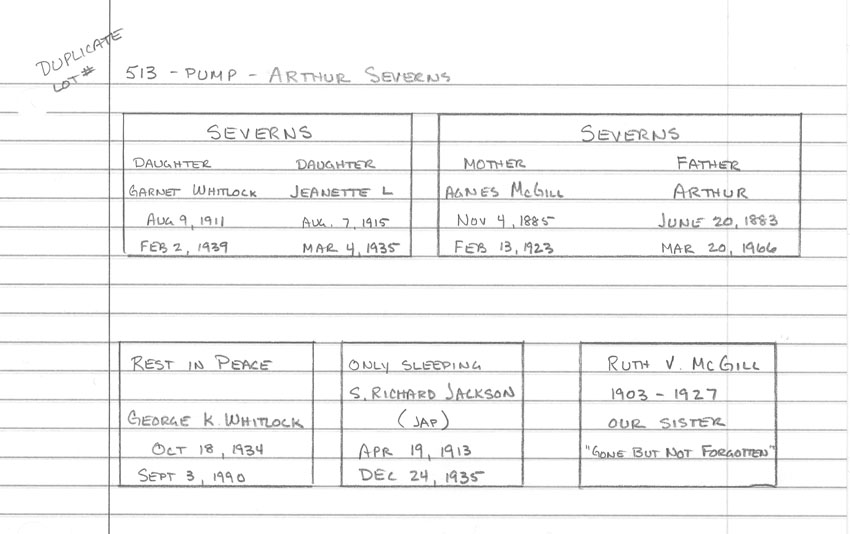 DUPLICATE
LOT #
513 - PUMP - ARTHUR SEVERNS
SEVERNS
DAUGHTER DAUGHTER
GARNET WHITLOCK JEANETTE L
AUG 9, 1911 AUG. 7, 1915
FEB 2, 1939 MAR 4, 1935
SEVERNS
MOTHER FATHER
AGNES MCGILL ARTHUR
NOV 4, 1885 JUNE 20, 1883
FEB 13, 1923 MAR 20, 1966
REST IN PEACE
GEORGE K. WHITLOCK
OCT 18, 1934
SEPT 3, 1990
ONLY SLEEPING
S. RICHARD JACKSON
(JAP)
APR 19, 1913
DEC 24, 1935
RUTH V. MCGILL
1903 - 1927
OUR SISTER
"GONE BUT NOT FORGOTTEN"